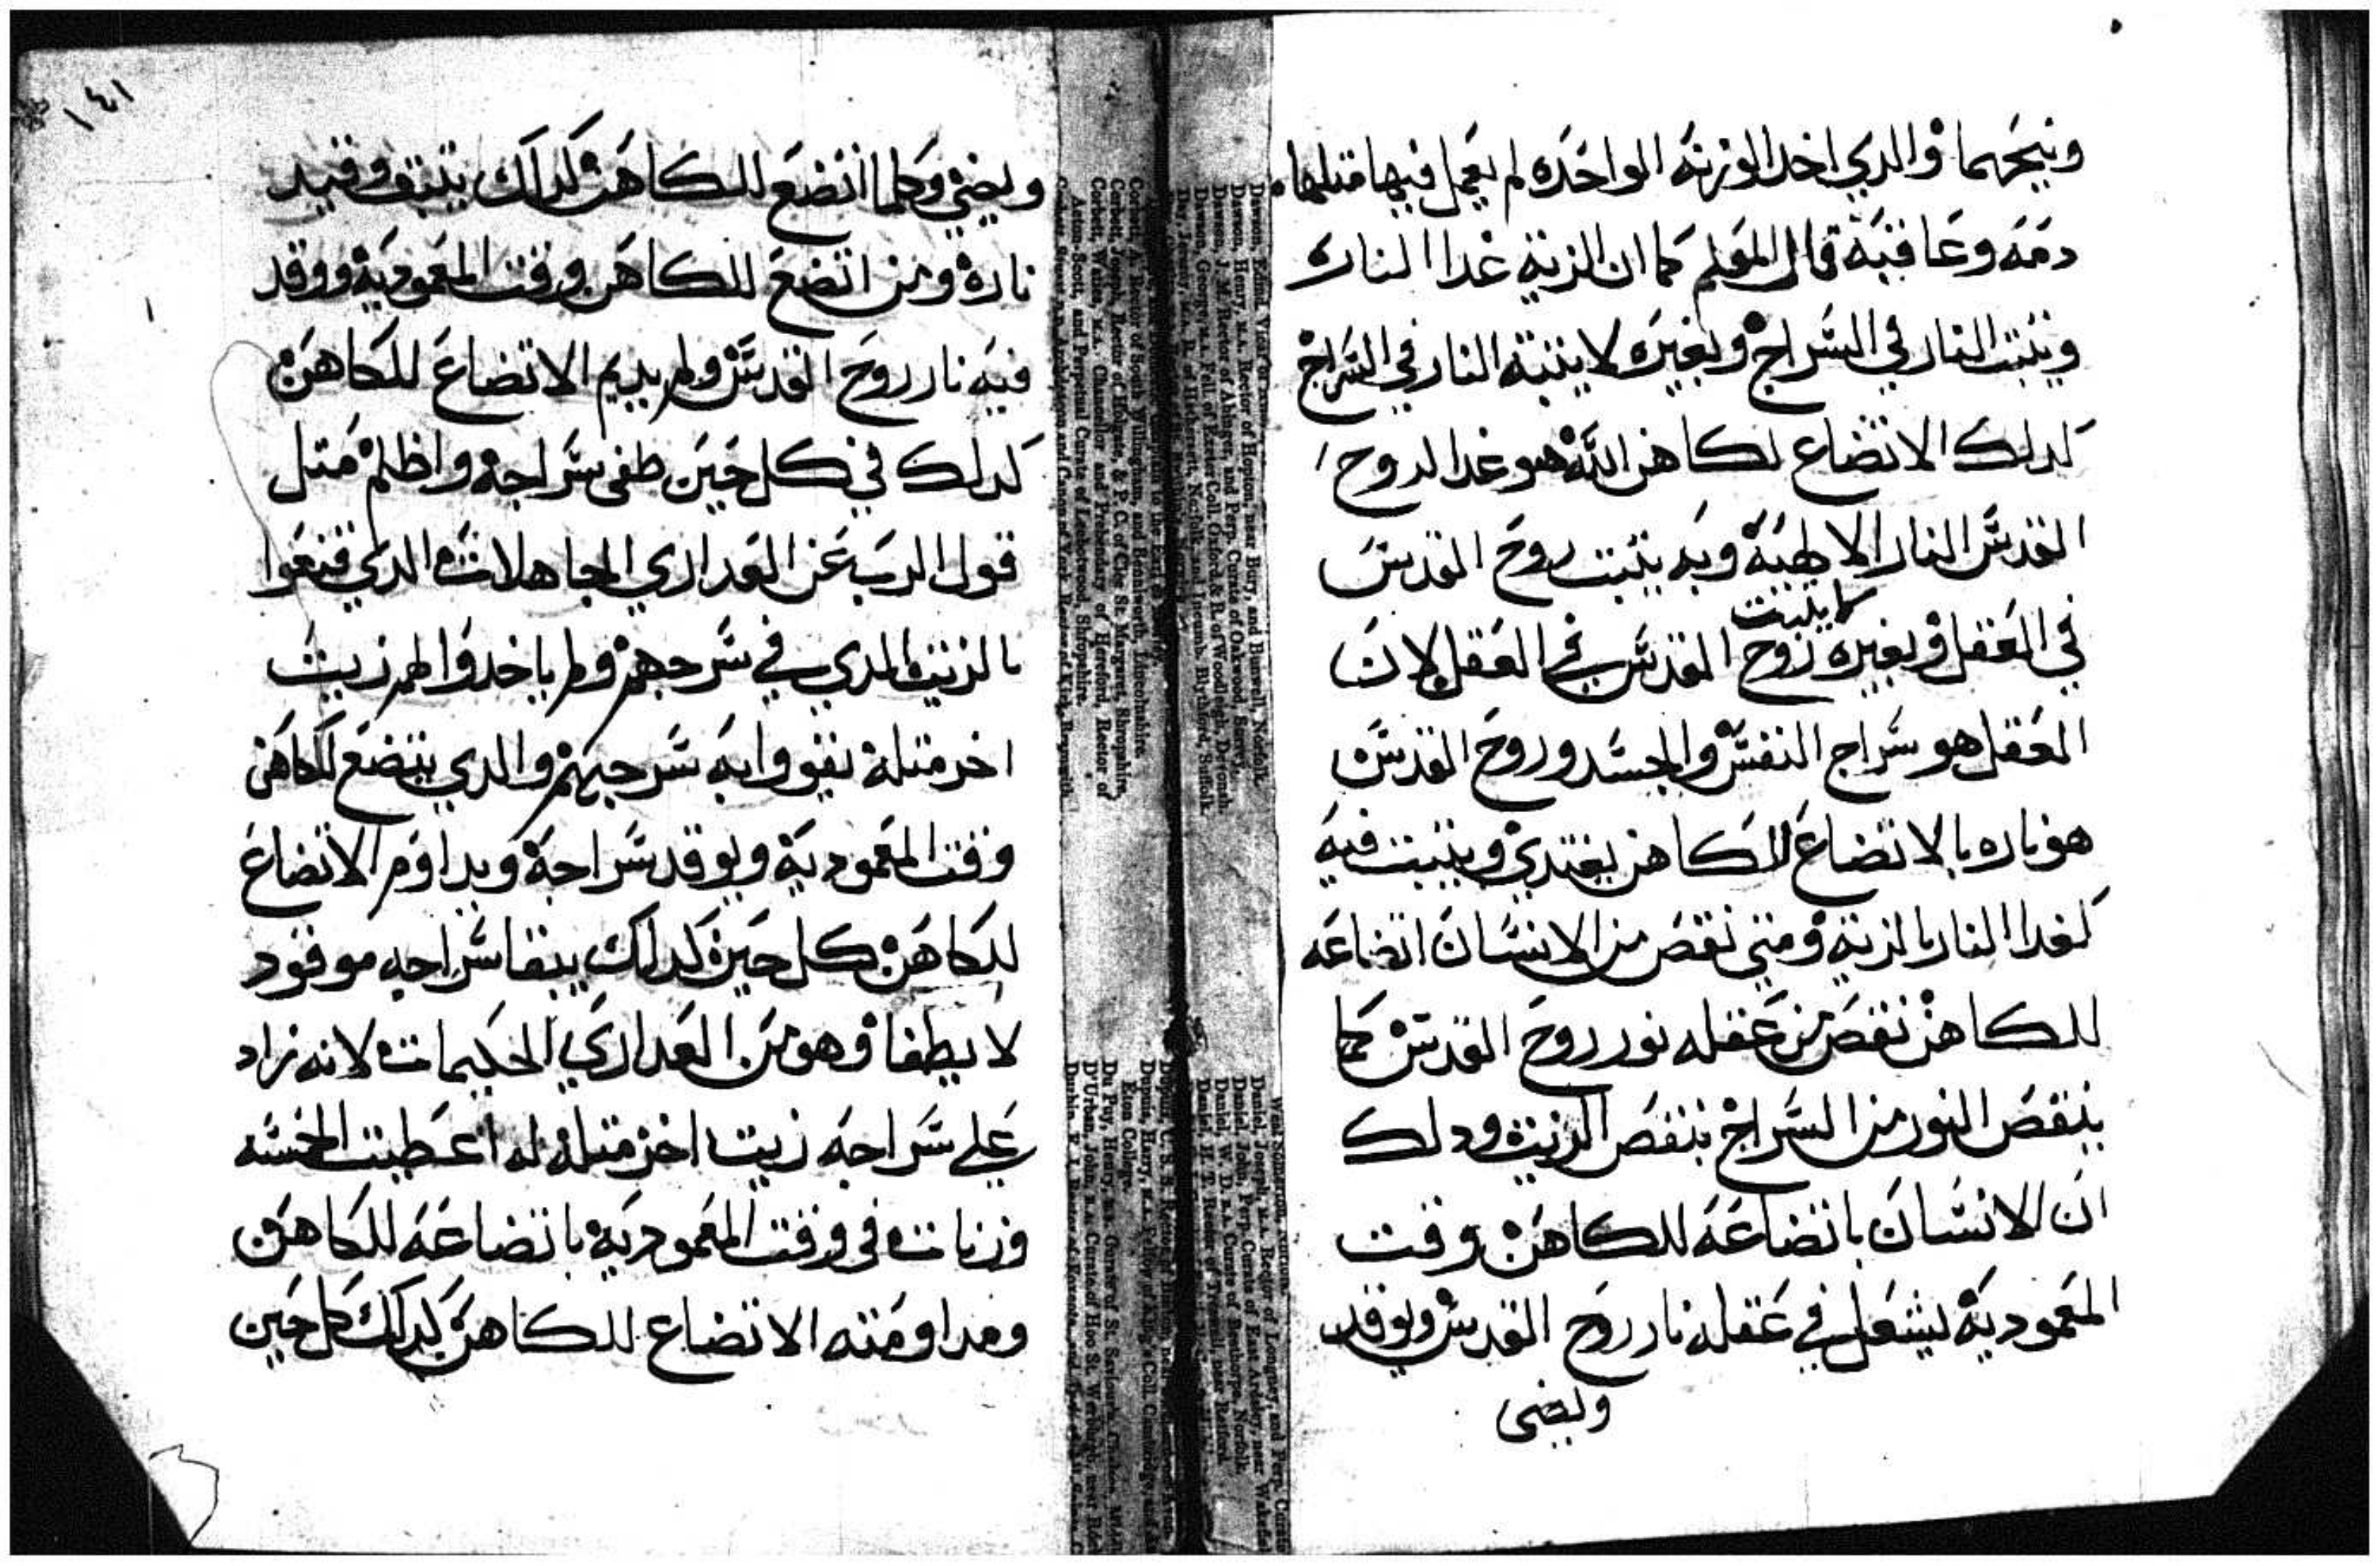 ويتجرهما والدي اخد الوزنه الواحده لم يعمل فيها متلهما
دمه وعاقبه قال المعلم كما ان الزيت غدا النار
ويتبت النار في السراج وبغيره لا يتبت النار في السراج
كدلك الاتضاع لكاهن الله هو غدا لروح
القدس النار الالهيه وبه يتبت روح القدس
في العقل وبغيره كما يتبت روح القدس في العقل لان
العقل هو سراج النفس والجسد وروح القدس
هو ناره بالاتضاع للكاهن يغتدي ويتبت فيه
كغدا النار بالزيت ومتي نقص من الانسان اتضاعه
للكاهن نقص من عقله نور روح القدس كما
ينقص النور من السراج بنقص الزيت ودلك
ان الانسان باتضاعه للكاهن وقت
المعموديه يشعل في عقله نار روح القدس ويوقد
ويضي
١٤١
ويضي وكلما اتضع للكاهن كدلك يتبت وقيد
ناره ومن اتضع للكاهن وقت المعموديه ووقد
فيه نار روح القدس ولم يديم الاتضاع للكاهن
كدلك في كل حين طفي سراجه واظلم متل
قول الرب عن العداري الجاهلات الدي قنعوا
بالزيت الدي في سرجهم ولم ياخدوا لهم زيت
اخر متله يقووا به سرجهم والدي يتضع للكاهن
وقت المعموديه ويوقد سراجه ويداوم الاتضاع
للكاهن كل حين كدلك يبقا سراجه موقود
لا يطفا وهو من العداري الحكيمات لانه زاد
علي سراجه زيت اخر متله له اعطيت الخمسه
وزنات في وقت المعموديه باتضاعه للكاهن
ومداومته الاتضاع للكاهن كدلك كل حين